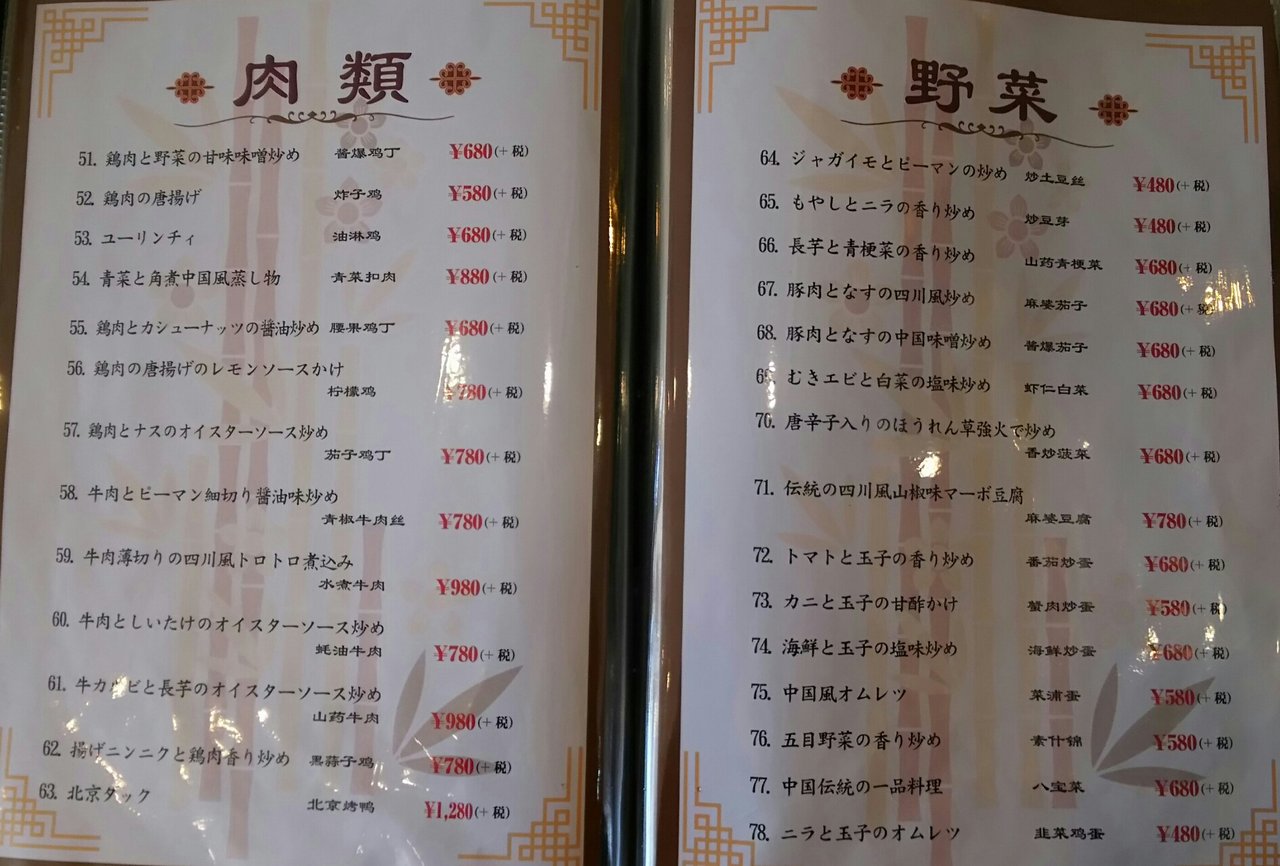 肉類
51. 鶏肉と野菜の甘味味噌炒め 酱爆鸡丁 ¥680(+ 税)
52. 鶏肉の唐揚げ 炸子鸡 ¥580(+ 税)
53. ユーリンチィ 油淋鸡 ¥680(+ 税)
54. 青菜と角煮中国風蒸し物 青菜扣肉 ¥880(+ 税)
55. 鶏肉とカシューナッツの醤油炒め 腰果鸡丁 ¥680(+ 税)
56. 鶏肉の唐揚げのレモンソースかけ
柠檬鸡 ¥780(+ 税)
57. 鶏肉とナスのオイスターソース炒め
茄子鸡丁 ¥780(+ 税)
58. 牛肉とピーマン細切り醤油味炒め
青椒牛肉丝 ¥780(+ 税)
59. 牛肉薄切りの四川風トロトロ煮込み
水煮牛肉 ¥980(+ 税)
60. 牛肉としいたけのオイスターソース炒め
蚝油牛肉 ¥780(+ 税)
61. 牛カルビと長芋のオイスターソース炒め
山药牛肉 ¥980(+ 税)
62. 揚げニンニクと鶏肉香り炒め 黒蒜子鸡 ¥780(+ 税)
63. 北京ダック 北京烤鸭 ¥1,280(+ 税)
野菜
64. ジャガイモとピーマンの炒め 炒土豆丝 ¥480(+ 税)
65. もやしとニラの香り炒め 炒豆芽 ¥480(+ 税)
66. 長芋と青梗菜の香り炒め 山药青梗菜 ¥680(+ 税)
67. 豚肉となすの四川風炒め 麻婆茄子 ¥680(+ 税)
68. 豚肉となすの中国味噌炒め 酱爆茄子 ¥680(+ 税)
69. むきエビと白菜の塩味炒め 虾仁白菜 ¥680(+ 税)
70. 唐辛子入りのほうれん草強火で炒め
香炒菠菜 ¥680(+ 税)
71. 伝統の四川風山椒味マーボ豆腐
麻婆豆腐 ¥780(+ 税)
72. トマトと玉子の香り炒め 番茄炒蛋 ¥680(+ 税)
73. カニと玉子の甘酢かけ 蟹肉炒蛋 ¥580(+ 税)
74. 海鮮と玉子の塩味炒め 海鮮炒蛋 ¥680(+ 税)
75. 中国風オムレツ 菜浦蛋 ¥580(+ 税)
76. 五目野菜の香り炒め 素什锦 ¥580(+ 税)
77. 中国伝統の一品料理 八宝菜 ¥680(+ 税)
78. ニラと玉子のオムレツ 韭菜鸡蛋 ¥480(+ 税)